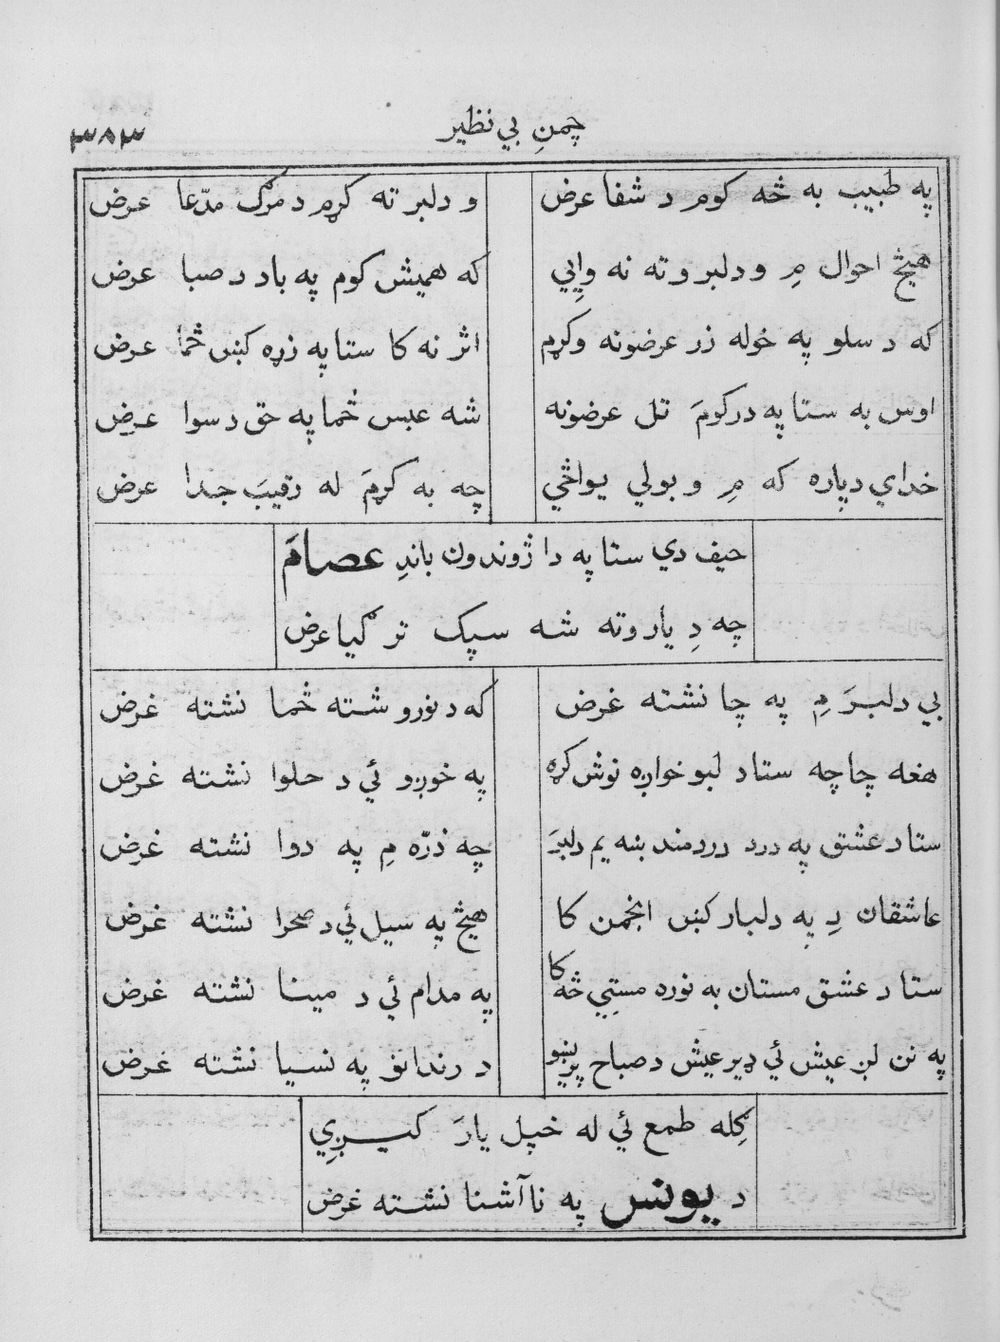 چمنِ بي نظير
٣٨٣
په طبيب به څه کوم د شفا عرض
و دلبر ته کړم د مرګ مدّعا عرض
هيڅ احوال مِ و دلبر وته نه وايي
که هميش کوم په باد د صبا عرض
که د سلو په خوله زر عرضونه وکړم
اثر نه کا ستا په زړه کښ څما عرض
اوس به ستا په در کومَ تل عرضونه
شه عبس څما په حق د سوا عرض
خداي دپاره که مِ و بولي يواځي
چه به کړمَ له رقيبَ جدا عرض
حيف دي ستا په دا ژوندون باندِ عصامَ
چه دِ يار وته شه سپک تر ګيا عرض
بي دلبرَ مِ په چا نشته غرض
که د نورو شته څما نشته غرض
هغه چا چه ستا د لبو خواږه نوش کړه
په خوږو ئي د حلوا نشته غرض
ستا د عشق په درد دردمند ښه يم دلبرَ
چه ذرّه مِ په دوا نشته غرض
عاشقان دِ په دلبار کښ انجمن کا
هيڅ په سيل ئي د صحرا نشته غرض
ستا د عشق مستان به نوره مستِيي څه کا
په مدام ئي د مينا نشته غرض
په نن لږ عيش ئي ډير عيش د صباح پريښو
د رندانو په نسيا نشته غرض
ګِله طمع ئي له خپل يارَ کيږي
د يونس په ناآشنا نشته غرض